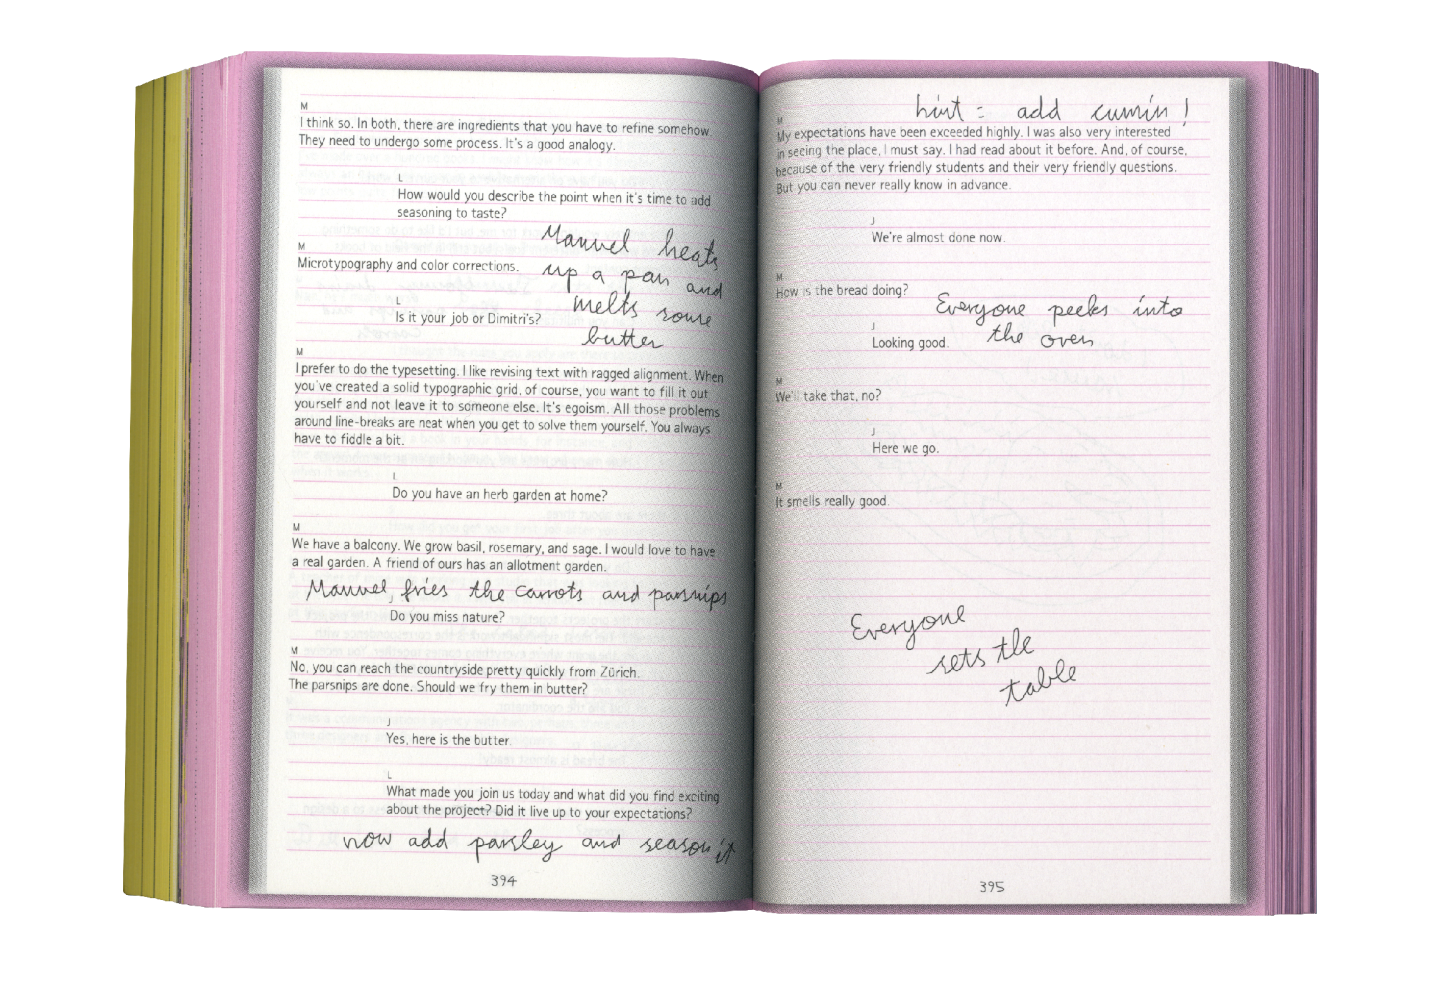 M
I think so. In both, there are ingredients that you have to refine somehow.
They need to undergo some process. It's a good analogy.
L
How would you describe the point when it's time to add
seasoning to taste?
Manuel heats
M
Microtypography and color corrections.
up a pan and
L
Is it your job or Dimitri's?
melts some
butter
M
I prefer to do the typesetting. I like revising text with ragged alignment. When
you've created a solid typographic grid, of course, you want to fill it out
yourself and not leave it to someone else. It's egoism. All those problems
around line-breaks are neat when you get to solve them yourself. You always
have to fiddle a bit.
L
Do you have an herb garden at home?
M
We have a balcony. We grow basil, rosemary, and sage. I would love to have
a real garden. A friend of ours has an allotment garden.
Manuel fries the carrots and parsnips
L
Do you miss nature?
M
No, you can reach the countryside pretty quickly from Zürich.
The parsnips are done. Should we fry them in butter?
J
Yes, here is the butter.
L
What made you join us today and what did you find exciting
about the project? Did it live up to your expectations?
now add parsley and season it
394
hint: add cumin!
M
My expectations have been exceeded highly. I was also very interested
in seeing the place, I must say. I had read about it before. And, of course,
because of the very friendly students and their very friendly questions.
But you can never really know in advance.
J
We're almost done now.
M
How is the bread doing?
Everyone peeks into
the oven
J
Looking good.
M
We'll take that, no?
J
Here we go.
M
It smells really good.
Everyone
sets the
table
395